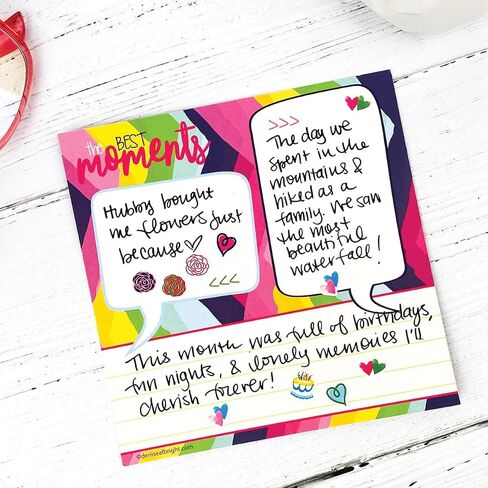 the BEST
moments
Hubby bought
me flowers just
because
>>>
The day we
spent in the
mountains &
hiked as a
family. We saw
the most
beautiful
waterfall!
<<<
This month was full of birthdays,
fun nights, & lovely memories I'll
cherish forever!
©denisealbright.com